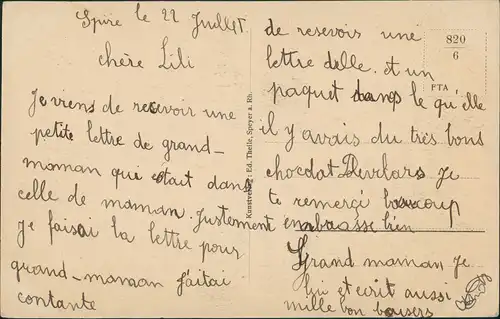 Spire le 22 Juillet
chère Lili
Je viens de recevoir une
petite lettre de grand-
maman qui etait dans
celle de maman. Justement
je faisai la lettre pour
grand-maman j'aitai
contante
de resevoir une
lettre delle. et un
paquet dans le qu'elle
il y avais du très bons
chocdat Je
te remerci baucoup
enbrasse bien
Grand maman Je
lui et ecrit aussi
mille bon baisers
820
6
PTA
Kunstverlag: Ed. Thelle, Speyer a. Rh.